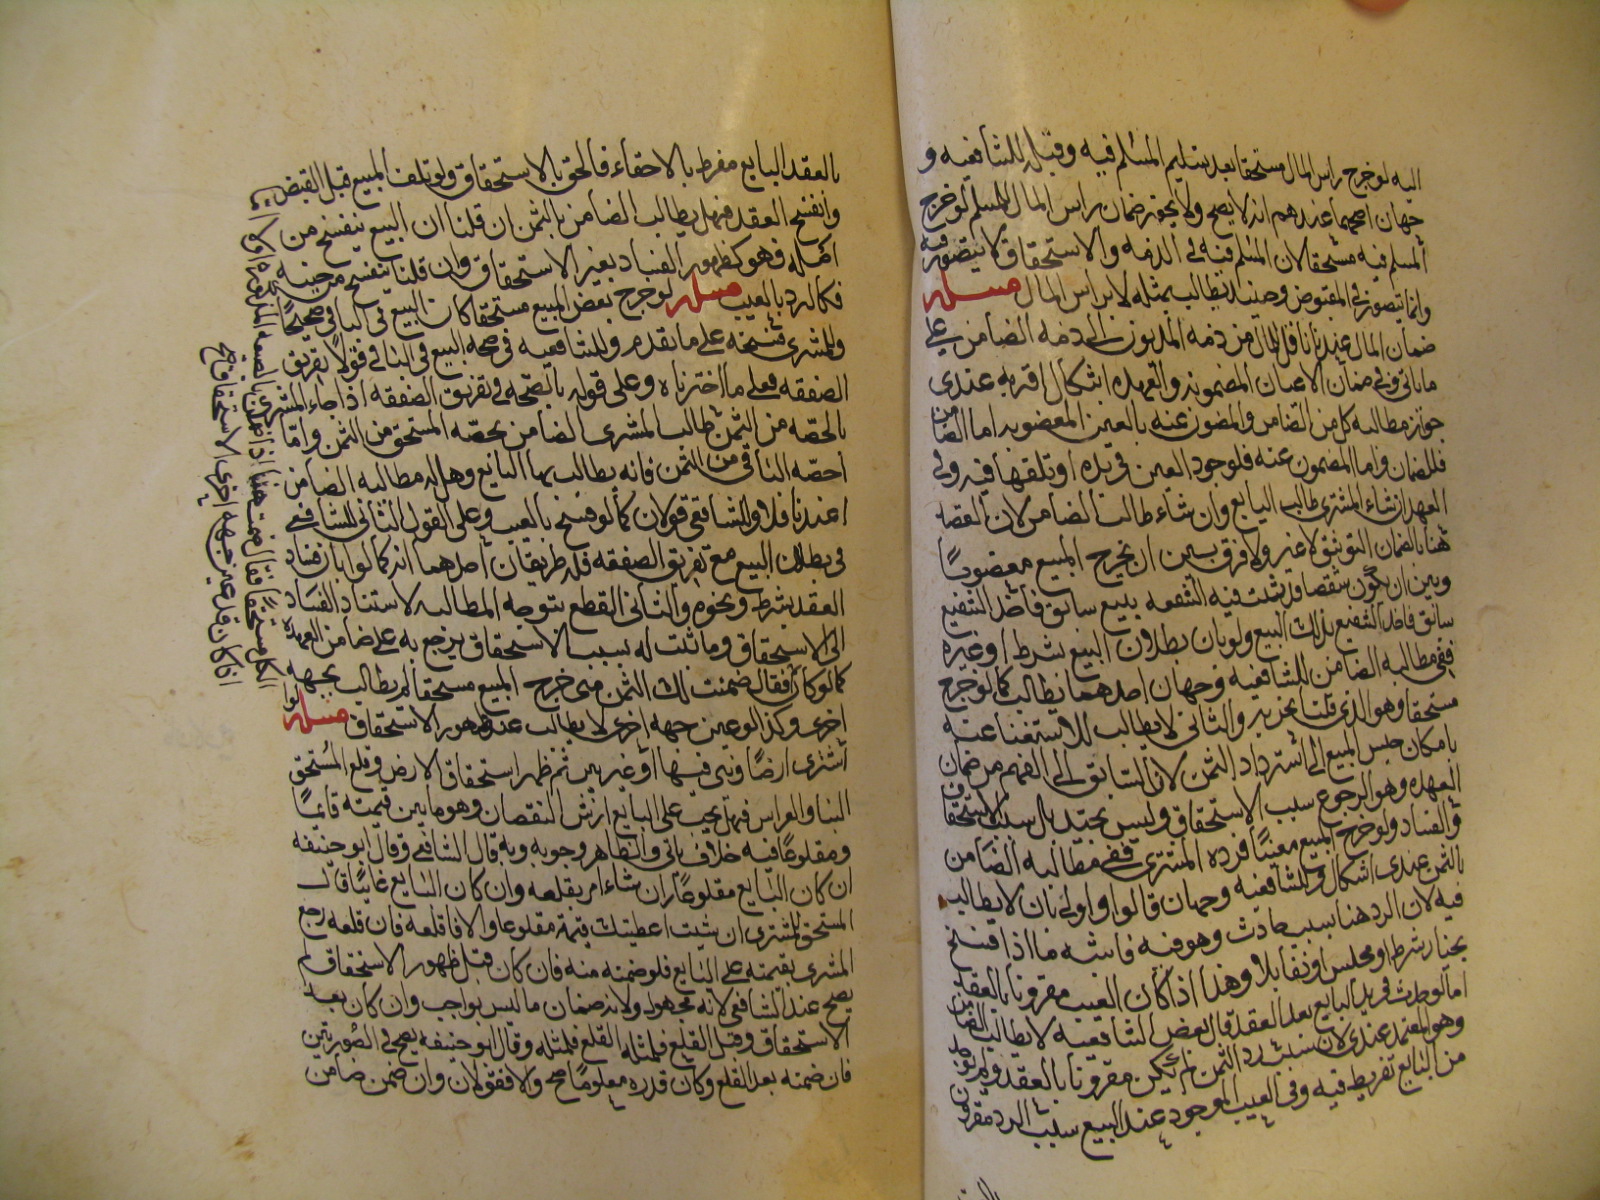 اليه لو خرج راس المال مستحقا بعد تسليم المسلم فيه وقبله للشافعيه و
جهان اصحهما عندهم انه لا يصح ولا يجوز ضمان راس المال للمسلم لو خرج
المسلم فيه مستحقا لان المسلم فيه في الذمه والاستحقاق لا يتصور فيه
وانما يتصور في المقبوض وحينئذ يطالب بمثله لا براس المال مسله
ضمان المال عندنا ناقل للمال من ذمه المديون الى ذمه الضامن على
ما ياتي وفي ضمان الاعيان المضمونه والعهده اشكال اقربه عندي
جواز مطالبه كل من الضامن والمضمون عنه بالعين المغصوبه اما الضامن
فللضمان واما المضمون عنه فلوجود العين في يده او تلفها فيه وفي
العهده ان شاء المشتري طالب البايع وان شاء طالب الضامن لان القصد
هنا بالضمان التوثق لا غير ولا فرق بين ان يخرج المبيع مغصوباً
وبين ان يكون شقصا قد ثبتت فيه الشفعه ببيع سابق فاخذ الشفيع
سابق فاخذ الشفيع بذلك البيع ولو بان بطلان البيع بشرط او غيره
ففي مطالبه الضامن للشافعيه وجهان احدهما يطالب كما لو خرج
مستحقا وهو الذي قلنا نحن به والثاني لا يطالب للاستغنا عنه
بامكان حبس المبيع الى استرداد الثمن لان السابق الى الفهم من ضمان
العهده وهو الرجوع بسبب الاستحقاق وليس بجيد بل بسبب الاستحقاق
والفساد ولو خرج المبيع معيباً فرده المشتري ففي مطالبه الضامن
بالثمن عندي اشكال وللشافعيه وجهان قالوا واولى بان لا يطالب
فيه لان الرد هنا بسبب حادث وهو فيه فاشبه ما اذا فسخ
بخيار شرط او مجلس او تقايلا وهذا اذا كان العيب مقرونا بالعقد
اما لو حدث في يد البايع بعد العقد قال بعض الشافعيه لا يطالب الضامن
وهو المعتمد عندي لان سبب رد الثمن لم يكن مقرونا بالعقد ولم يوجد
من البايع تفريط فيه وفي العيب الموجود عند البيع سبب الرد مقرون
بالعقد البايع مفرط بالاخفاء فالحق بالاستحقاق ولو تلف المبيع قبل القبض
وانفسخ العقد فهل يطالب الضامن بالثمن ان قلنا ان البيع ينفسخ من
اصله فهو كظهور الفساد بغير الاستحقاق وان قلنا ينفسخ من حينه
فكالرد بالعيب مسله لو خرج بعض المبيع مستحقا كان البيع في الباقي صحيحاً
وللمشتري فسخه على ما تقدم وللشافعيه في صحه البيع في الباقي قولا تفريق
الصفقه فعلى ما اخترناه وعلى قوله بالصحه في تفريق الصفقه اذا جاء المشتري
بالحصه من الثمن طالب المشتري الضامن بحصه المستحق من الثمن واما
حصه الباقي من الثمن فانه يطالب بها البايع وهل له مطالبه الضامن
اما عندنا فلا وللشافعي قولان كما لو فسخ بالعيب وعلى القول الثاني للشافعي
في بطلان البيع مع تفريق الصفقه فله طريقان احدهما انه كما لو بان فساد
العقد بشرط ونحوه والثاني القطع بتوجه المطالبه لاستناد الفساد
الى الاستحقاق وما ثبت له بسبب الاستحقاق يرجع به على ضامن العهده
كما لو كان فقال ضمنت لك الثمن متى خرج المبيع مستحقا لم يطالب بجهه
اخرى وكذا لو عين جهه اخرى لا يطالب عند ظهور الاستحقاق مسله لو
اشترى ارضا وبنى فيها او غرس ثم ظهر استحقاق الارض وقلع المستحق
البنا والغراس فهل يجب على البايع ارش النقصان وهو ما بين قيمته قايماً
ومقلوعاً فيه خلاف ياتي والظاهر وجوبه وبه قال الشافعي وقال ابو حنيفه
ان كان البايع حاضراً مقلوعاً ان شاء امر بقلعه وان كان البايع غايباً قال
المستحق للمشتري ان شيت اعطيتك قيمته مقلوعا والا فاقلعه فان قلعه رجع
المشتري بقيمته على البايع فلو ضمنه منه فان كان قبل ظهور الاستحقاق لم
يصح عند الشافعي لانه مجهول ولانه ضمان ما ليس بواجب وان كان بعد
الاستحقاق وقبل القلع فلمثله القلع فلمثله وقال ابو حنيفه يصح في الصورتين
فان ضمنه بعد القلع وكان قدره معلوماً صح والا فقولان وان ضمن ضامن
الكل مستحقاً فقال ضمنت
اذا كان قد عين جهه اخرى الاستحقاق